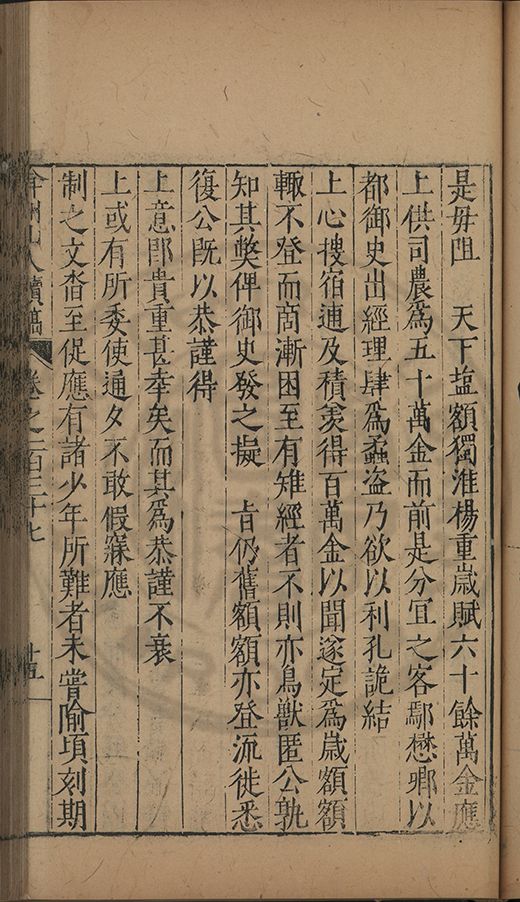 是毋阻　天下塩額獨淮楊重歲賦六十餘萬金應
上供司農爲五十萬金而前是分宜之客鄢懋卿以
都御史出經理肆爲蟊盜乃欲以利孔詭結
上心搜宿逋及積羡得百萬金以聞遂定爲歲額額
輙不登而啇漸困至有雉經者不則亦鳥獸匿公孰
知其獘俾御史發之擬　旨仍舊額額亦登流徙悉
復公既以恭謹得
上意郎貴重甚幸矣而其爲恭謹不衰
上或有所委使通夕不敢假寐應
制之文沓至促應有諸少年所難者未嘗隃頃刻期
弇州山人續稿　卷之一百三十七　十五